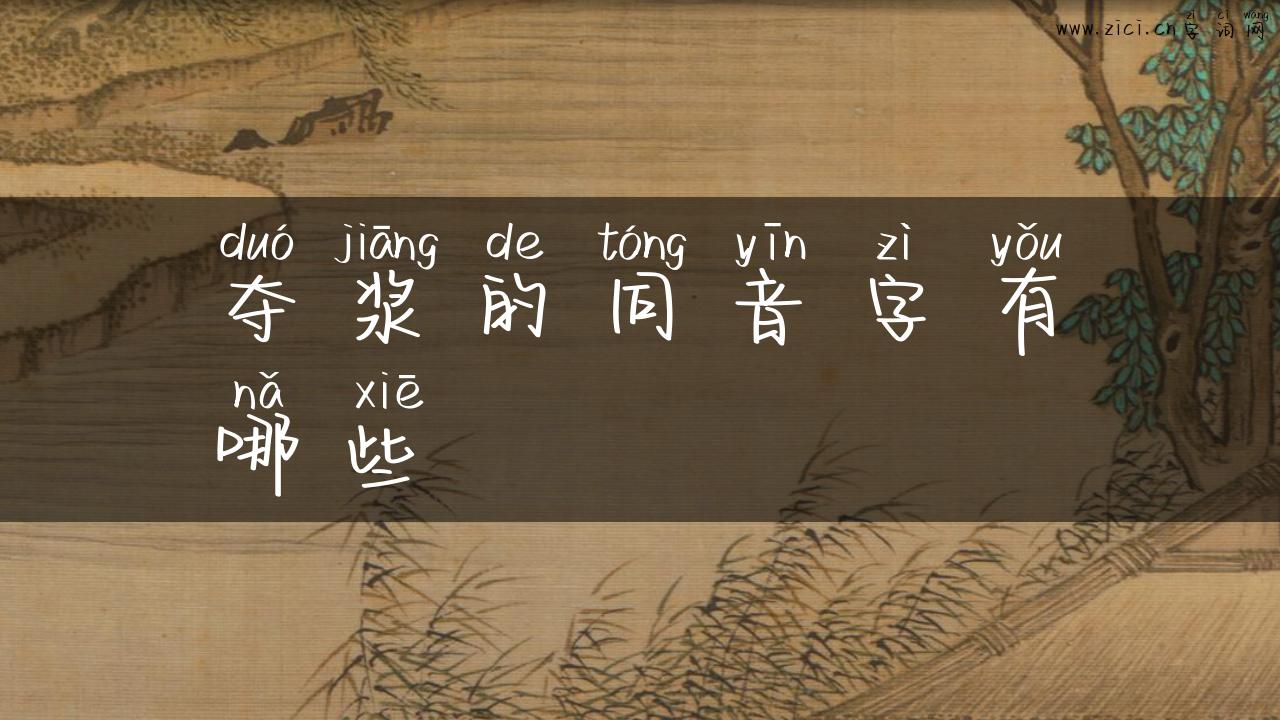 zì cí wǎng
www.zici.cn字词网
duó jiāng de tóng yīn zì yǒu
夺浆的同音字有
nǎ xiē
哪些